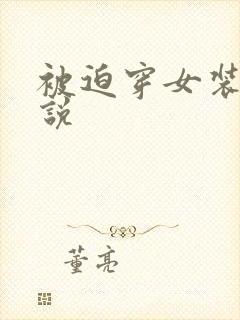 被迫穿女裝
說
董亮